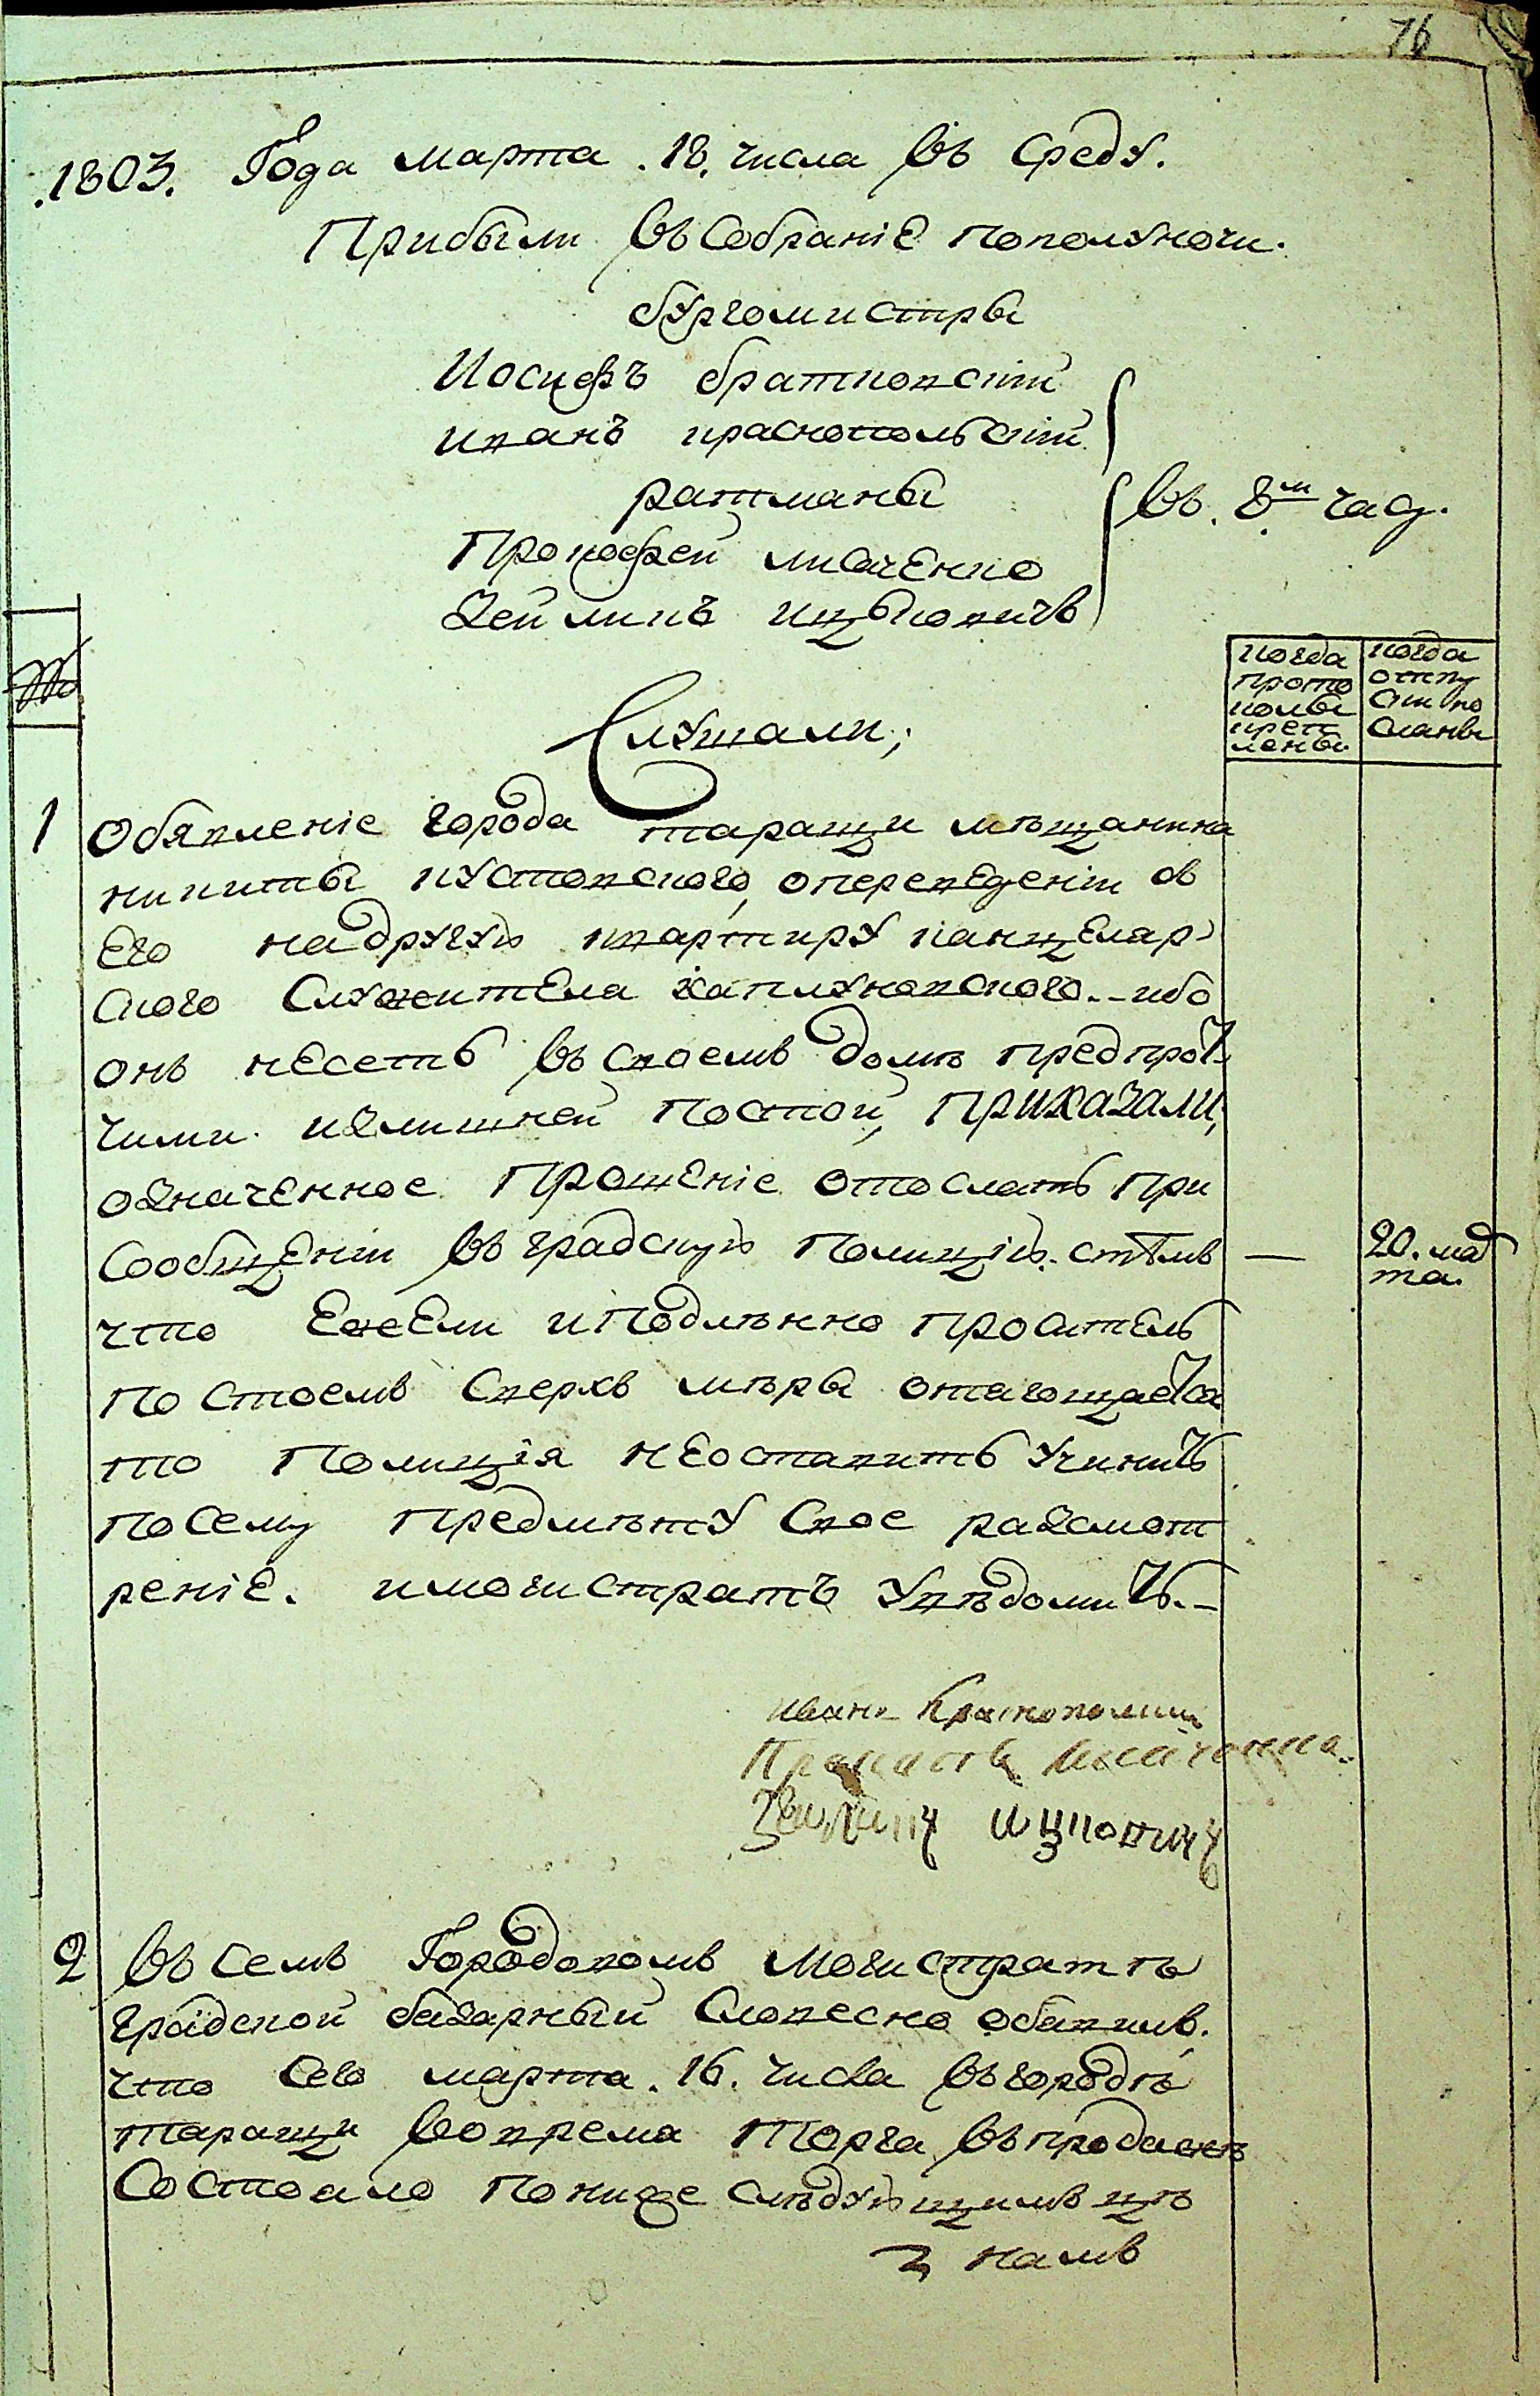 76
.1803. Года марта .18. числа въ среду.
Прибыли въ собраніе пополуночи.
бургомистры
Иосифъ братковскій
иванъ краснопольскій
ратманы
въ. 8м часу.
Прокофей лисаченко
Зейликъ ицковичъ
№
когда прото колы креп лены
когда отпу ски по сланы
Слушали;
1 Обявленіе города таращи мѣщанина
никиты кустовского, опереведеніи от
его надругую квартиру канцеляр
ского служителя каплуновского.- ибо
онъ несетъ въ своемъ домѣ предпро
чими излишней постой, приказали,
означенное прошеніе отослать при
сообщеніи въ градскую полицію. стѣмъ — 20. мар та.
что ежели иподлѣнно проситель
постоемъ сверхъ мѣры отягощается
то полиція неоставитъ учинить
посему предмѣту свое разсмот
реніе. имагистратъ увѣдомить.-
иванъ Краснополский
Зейликъ ицковичъ
2 въ семъ городовомъ магистратѣ
градской базарный словесно обявилъ.
что сего марта. 16. числа въ городѣ
таращи вовремя торга въ продаже
состояло пониже слѣдующимъ цѣ
намъ